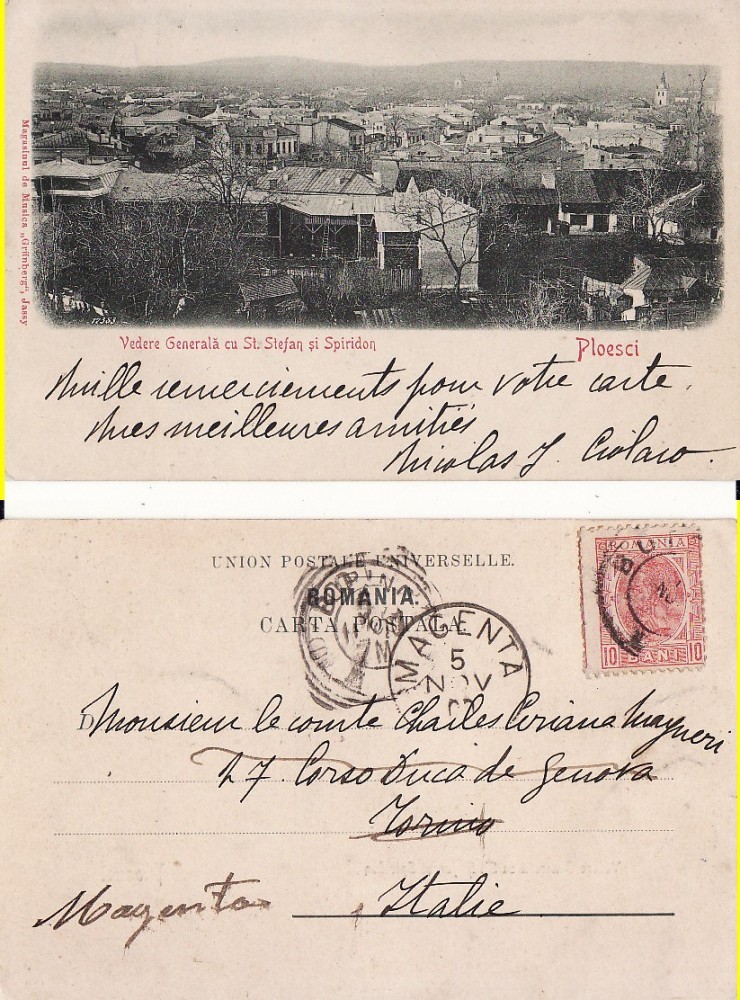 Magasinul de Musica „Grünberg“, Jassy
17353
Vedere Generală cu St. Stefan și Spiridon
Ploesci
Mille remerciements pour votre carte.
Mes meilleures amitiés
Nicolas J. Ciolaro.
UNION POSTALE UNIVERSELLE.
ROMANIA.
CARTA POSTALA.
ROMANIA
10 BANI 10
TORINO
MAGENTA
5
NOV
Monsieur le comte Charles Ceriana Mayneri
27. Corso Duca de Genova
Torino
Italie
Magenta